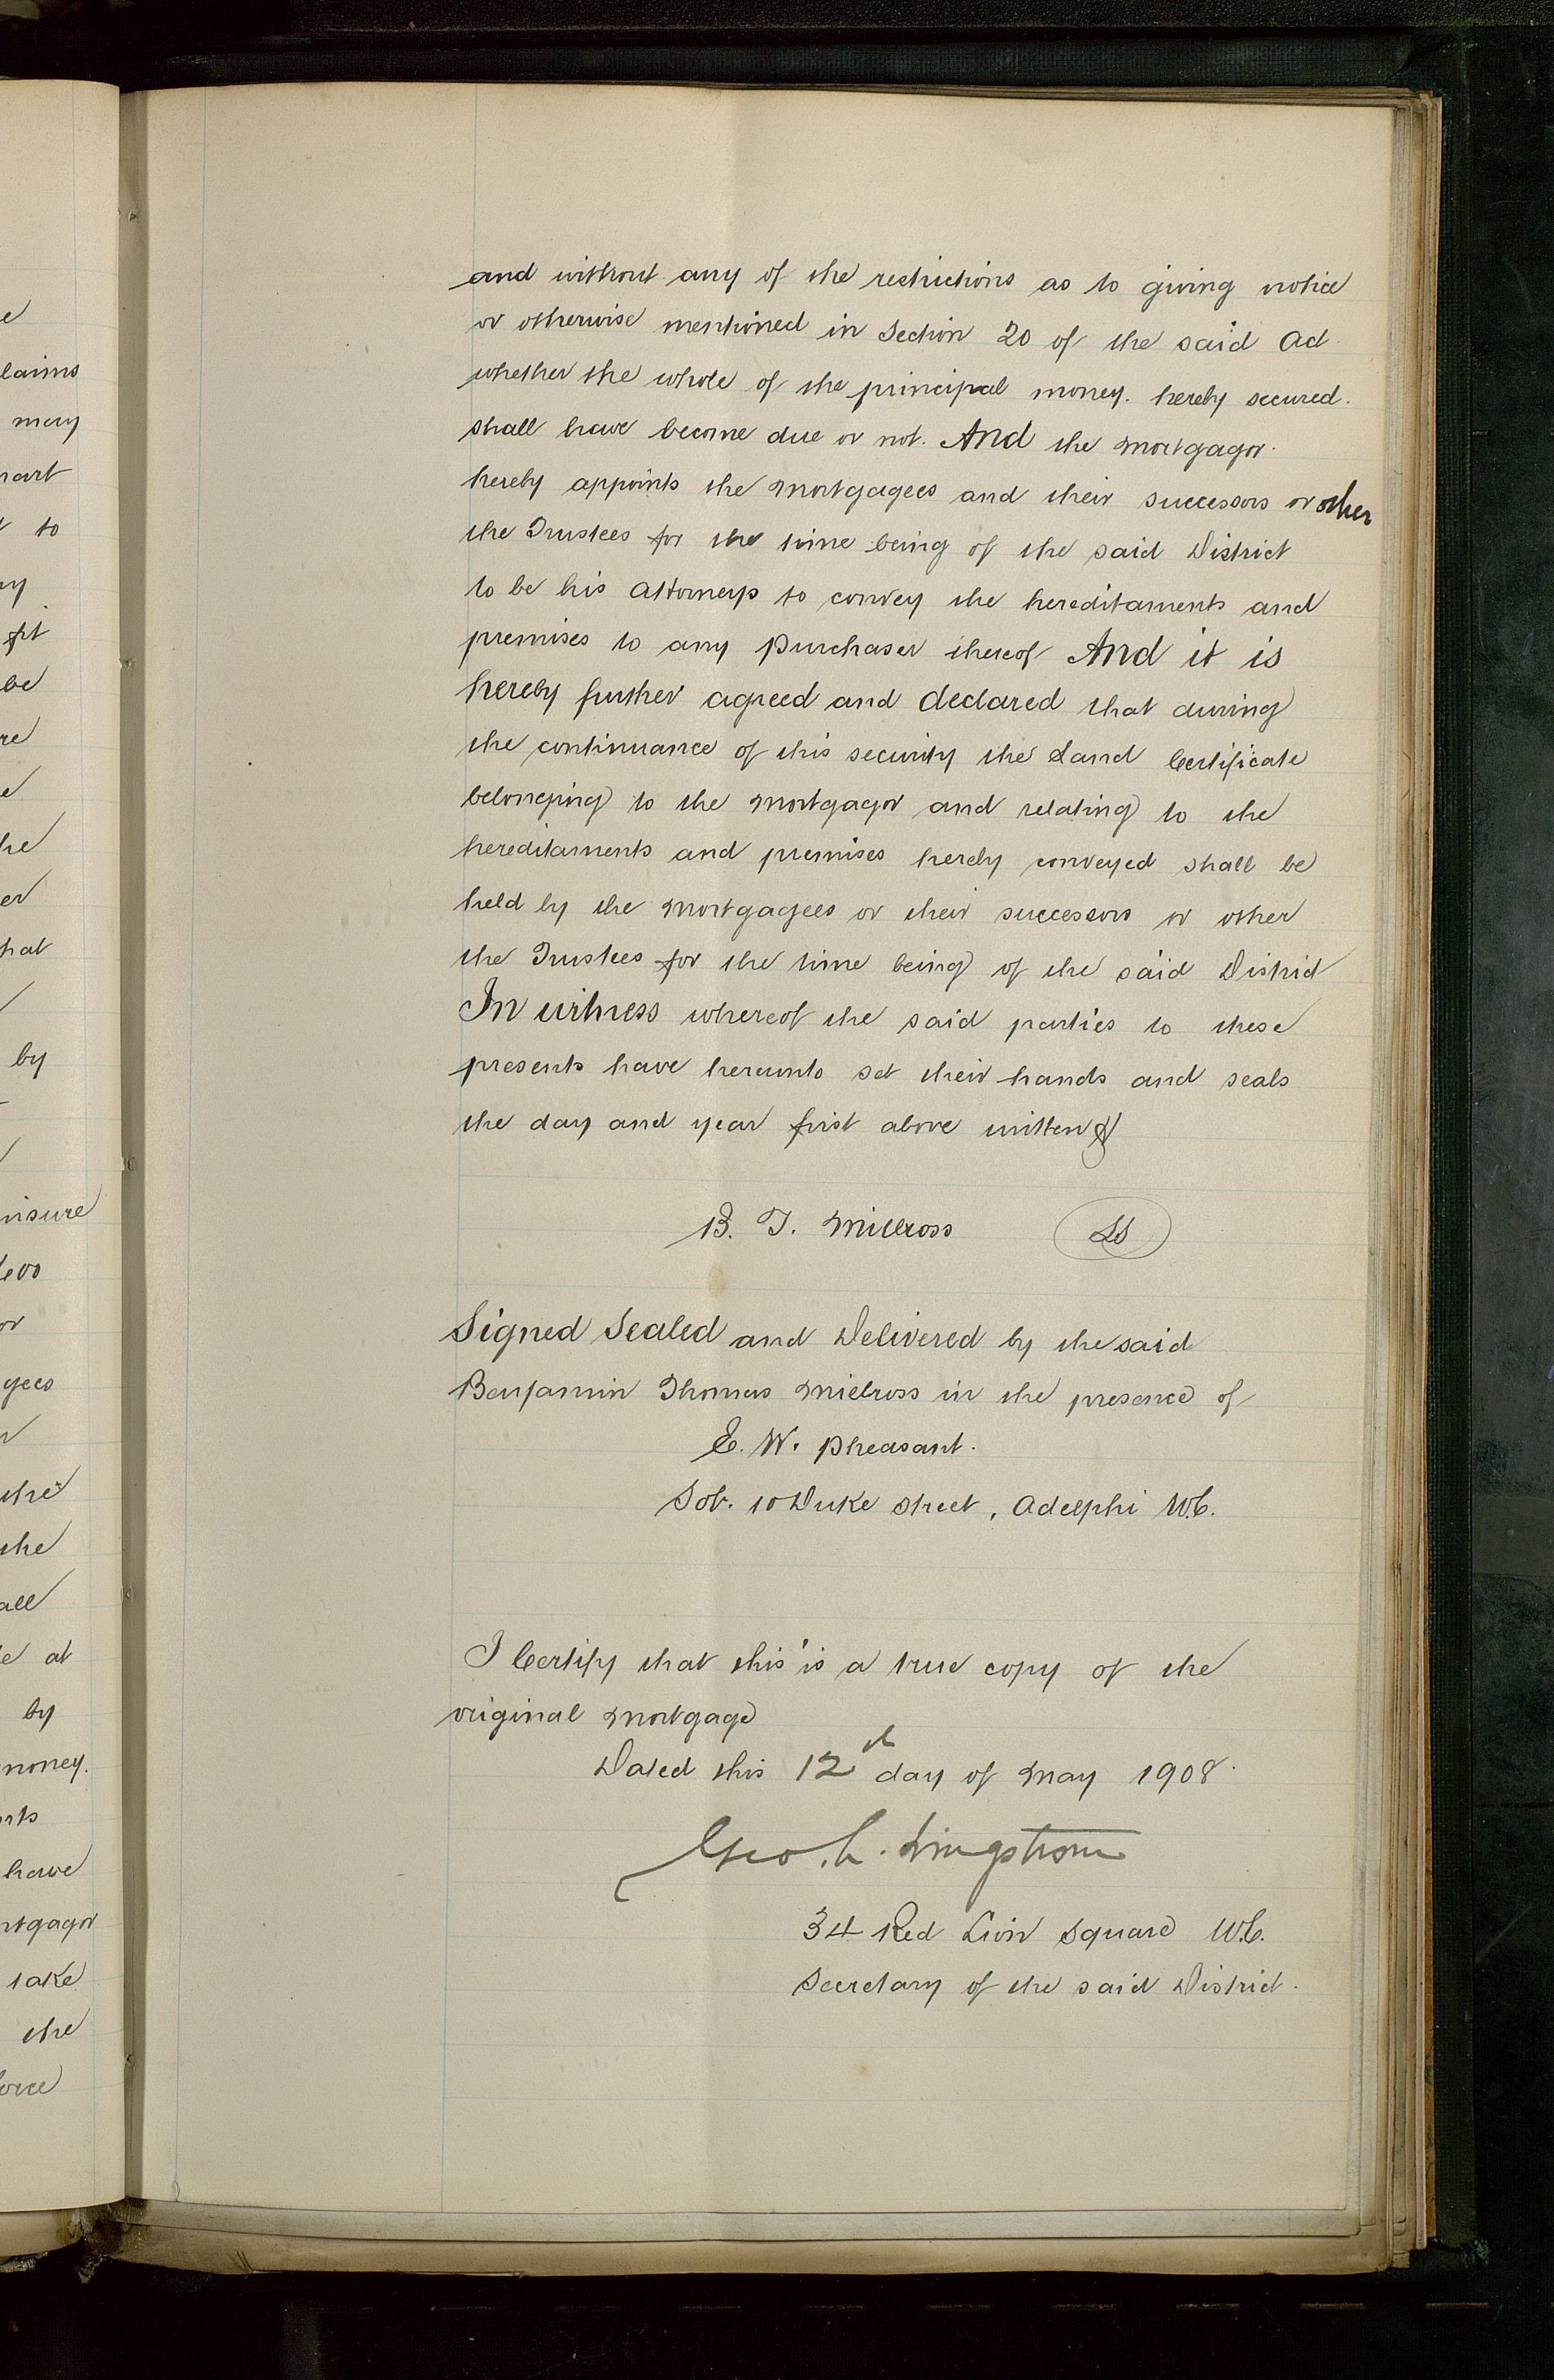 and without any of the restrictions as to giving notice
or otherwise mentioned in Section 20 of the said Act
whether the whole of the principal money. hereby secured.
shall have become due or not. And the Mortgagor.
hereby appoints the Mortgagees and their successors or other
the Trustees for the time being of the said District
to be his Attorneys to convey the hereditaments and
premises to any Purchaser thereof And it is
hereby further agreed and declared that during
the continuance of this security the Land Certificate
belonging to the Mortgagor and relating to the
hereditaments and premises hereby conveyed shall be
held by the Mortgagees or their successors or other
the Trustees for the time being of the said District
In witness whereof the said parties to these
presents have hereunto set their hands and seals
the day and year first above written
B. T. Millross LS
Signed Sealed and Delivered by the said
Benjamin Thomas Millross in the presence of
E. W. Pheasant.
Sol. 10 Duke Street, Adelphi W.C.
I Certify that this is a true copy of the
original Mortgage
Dated this 12th day of May 1908.
Geo. L.
34 Red Lion Square W.C.
Secretary of the said District.
laims
may
to
fit
be
by
insure
or
the
the
at
by
money.
have
take
the